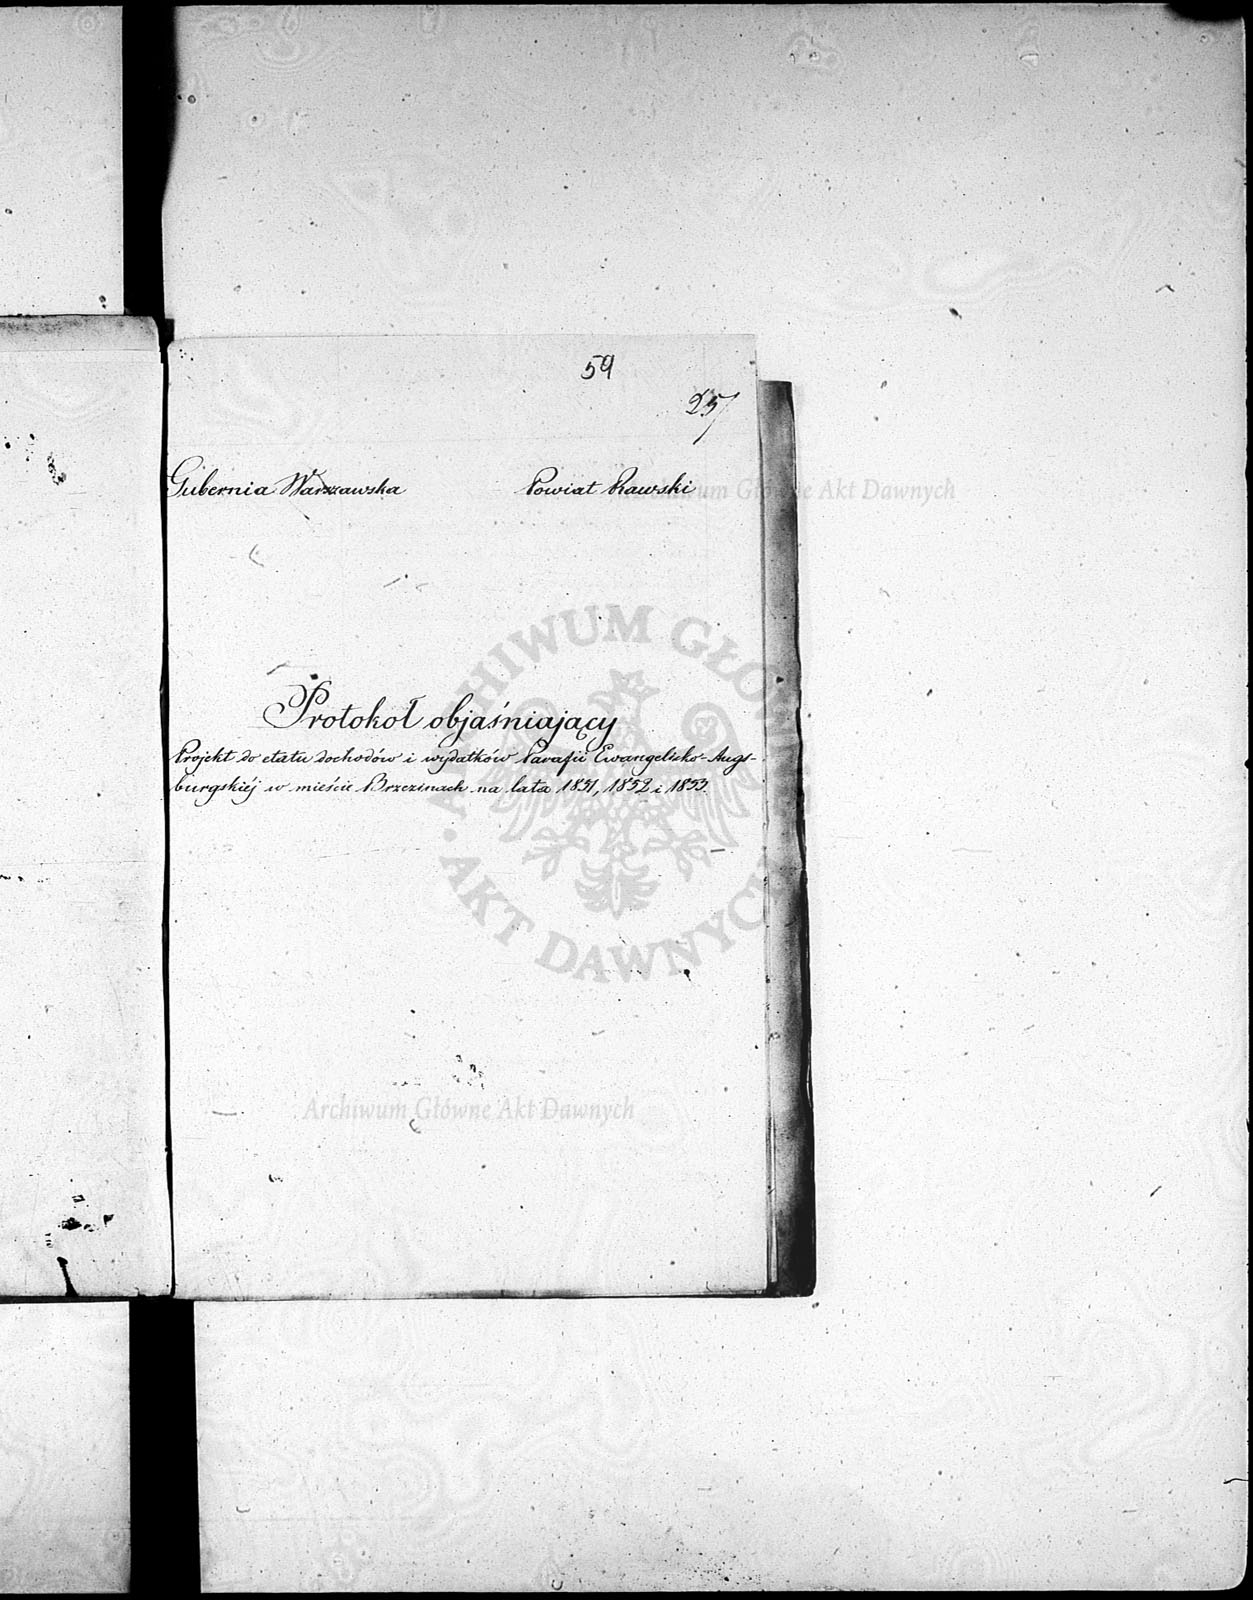 59
257
Gubernia Warszawska Powiat Rawski
Protokoł objaśniający
Projekt do etatu dochodów i wydatków Parafii Ewangelicko-Augs-
burgskiéj w mieście Brzezinach na lata 1851, 1852 i 1853.
Archiwum Główne Akt Dawnych
ARCHIWUM GŁÓWNE
AKT DAWNYCH
Archiwum Główne Akt Dawnych